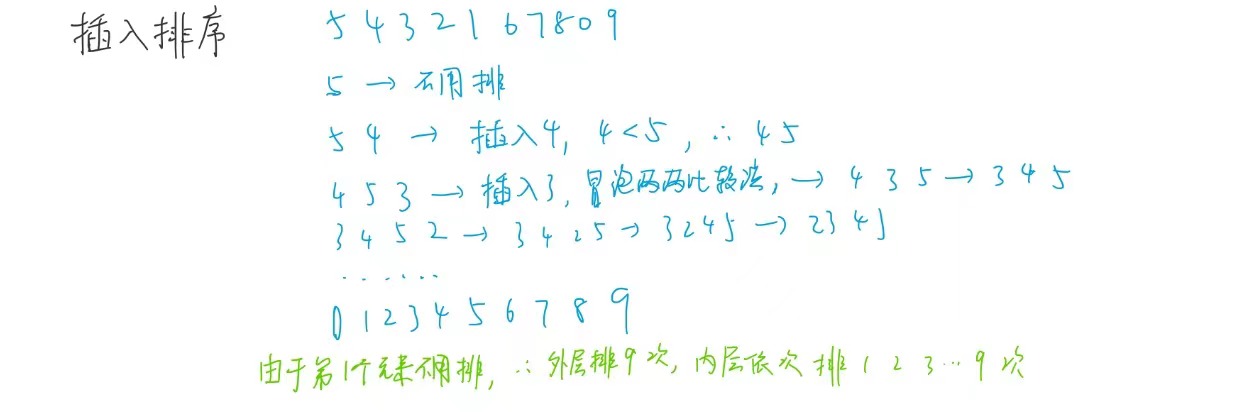 插入排序
5 4 3 2 1 6 7 8 0 9
5 → 不用排
5 4 → 插入4, 4<5, ∴ 4 5
4 5 3 → 插入3, 冒泡两两比较法, → 4 3 5 → 3 4 5
3 4 5 2 → 3 4 2 5 → 3 2 4 5 → 2 3 4 5
......
0 1 2 3 4 5 6 7 8 9
由于第1个元素不用排, ∴ 外层排9次, 内层依次排 1 2 3 … 9 次